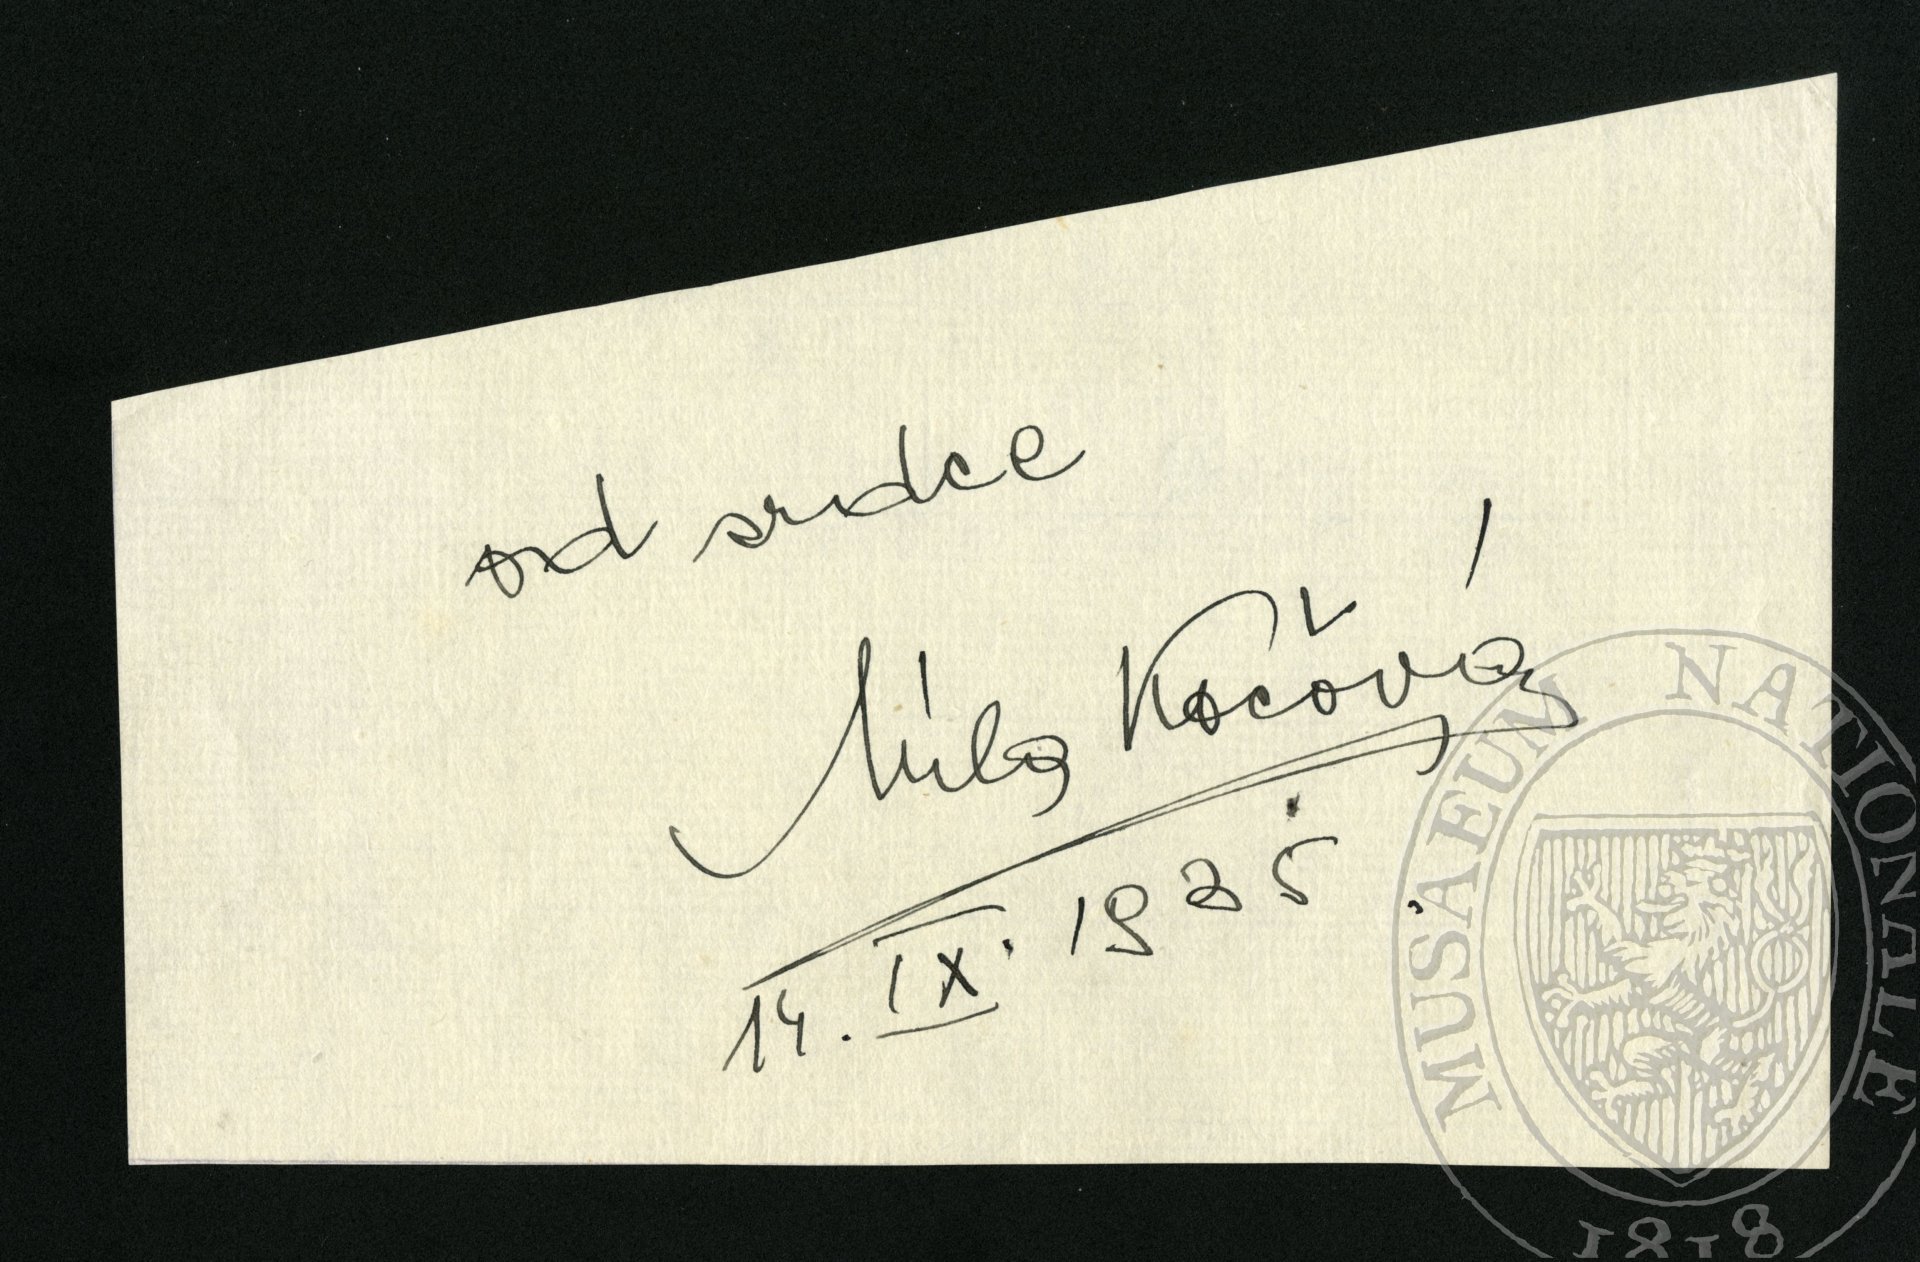 od srdce
Míla Kočová
14. IX. 1935.
MUSAEUM NATIONALE
1818